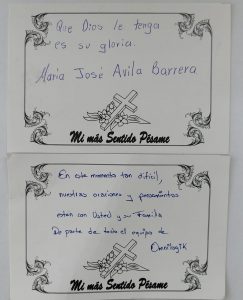 Que Dios le tenga
es su gloria.
Maria José Avila Barrera
Mi más Sentido Pésame
En este momento tan difícil,
nuestras oraciones y pensamientos
estan con Usted y su Familia
De parte de todo el equipo de
Omnilogik
Mi más Sentido Pésame